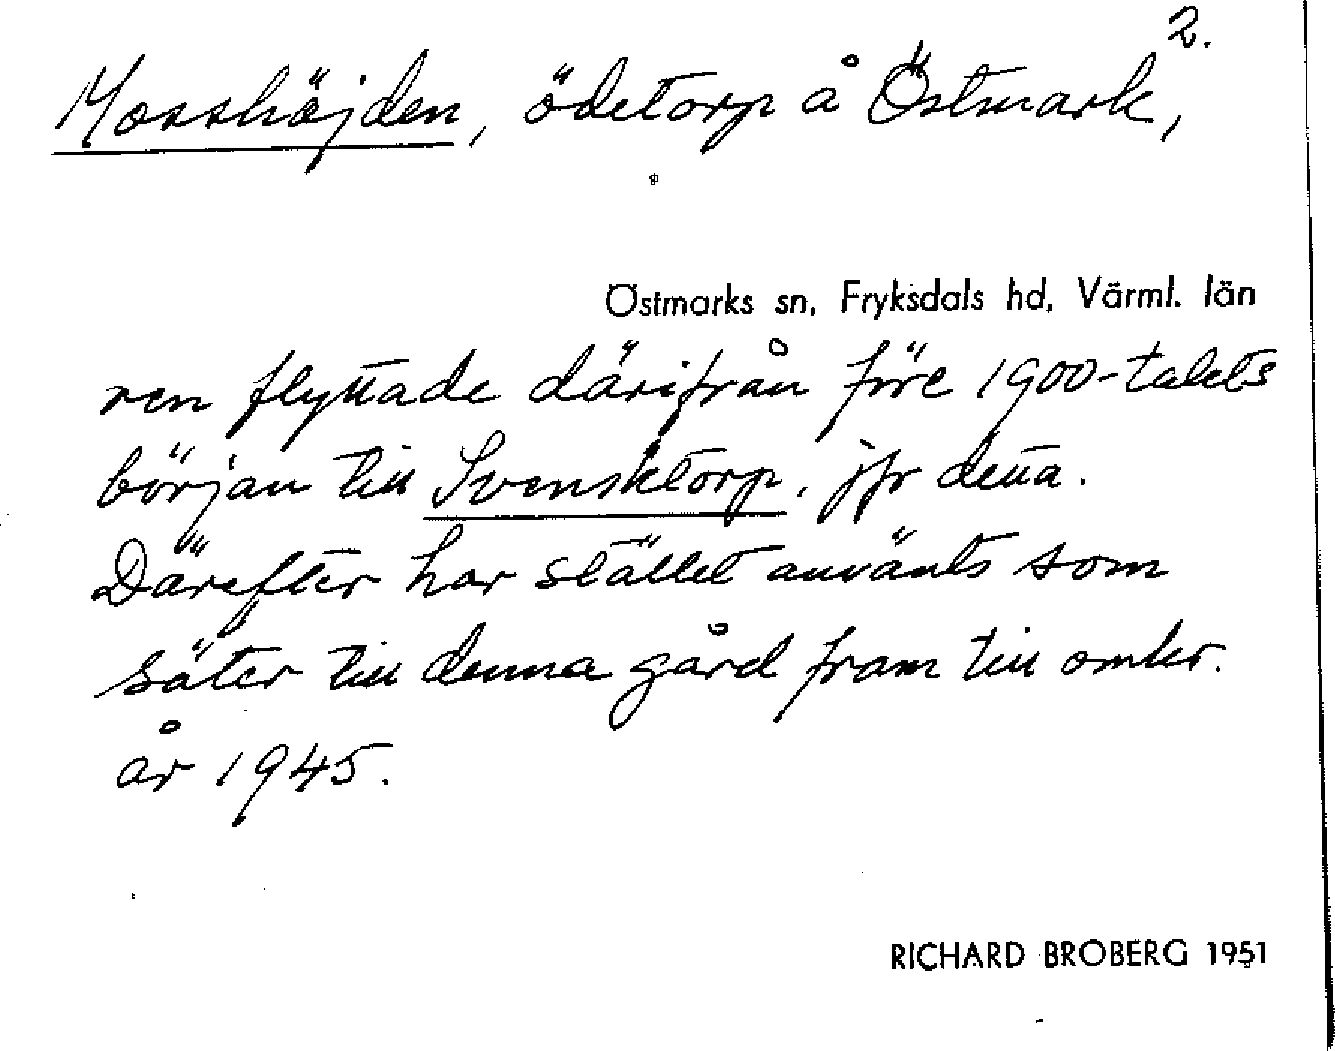 2.
Mosshöjden, ödetorp å Östmark,
Östmarks sn, Fryksdals hd, Värml. län
ren flyttade därifrån före 1900-talets
början till Svensktorp, jfr detta.
Därefter har stället använts som
säter till denna gård fram till omkr.
år 1945.
RICHARD BROBERG 1951